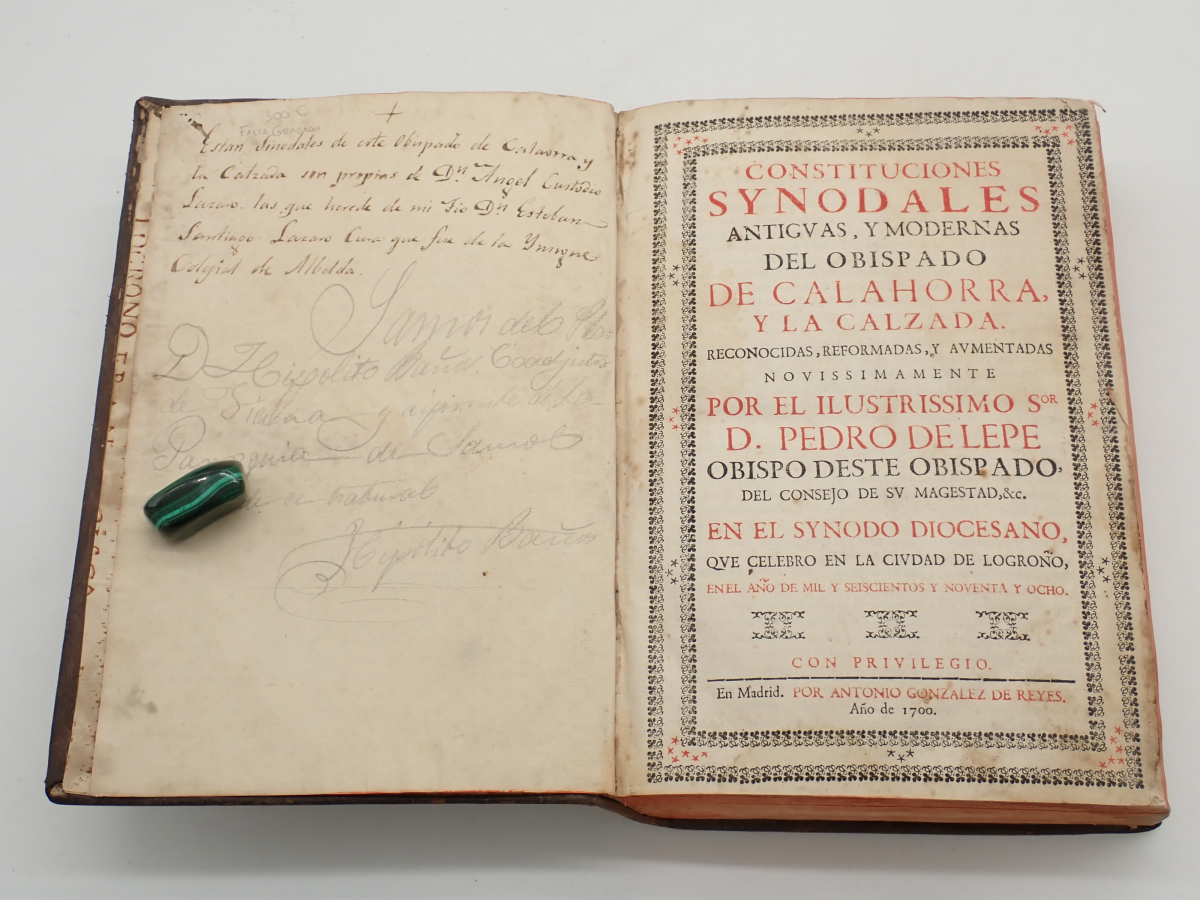 300 €
FALTA GRABADO
Estan Sinodales de este Obispado de Calaorra y
la Calzada son propias de Dn Angel Custodio
Lazaro. las que herede de mi Tio Dn Esteban
Santiago Lazaro Cura que fue de la
Colegial de Albelda.
D Hipolito
de y
de
Hipolito Baños
CONSTITUCIONES
SYNODALES
ANTIGVAS, Y MODERNAS
DEL OBISPADO
DE CALAHORRA,
Y LA CALZADA.
RECONOCIDAS, REFORMADAS, Y AVMENTADAS
NOVISSIMAMENTE
POR EL ILUSTRISSIMO SOR
D. PEDRO DE LEPE
OBISPO DESTE OBISPADO,
DEL CONSEJO DE SV MAGESTAD, &c.
EN EL SYNODO DIOCESANO,
QVE CELEBRO EN LA CIVDAD DE LOGROÑO,
EN EL AÑO DE MIL Y SEISCIENTOS Y NOVENTA Y OCHO.
CON PRIVILEGIO.
En Madrid. POR ANTONIO GONZALEZ DE REYES.
Año de 1700.